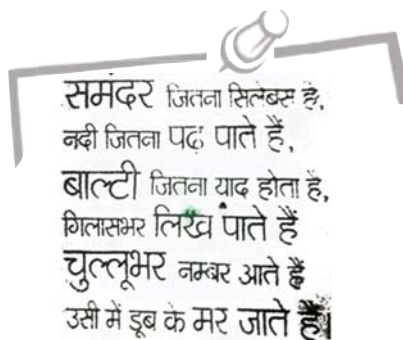 समंदर जितना सिलेबस है,
नदी जितना पढ पाते हैं,
बाल्टी जितना याद होता है,
गिलासभर लिख पाते हैं
चुल्लूभर नम्बर आते हैं
उसी में डूब के मर जाते हैं